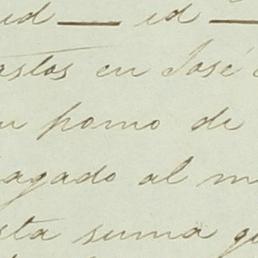 id — id —
astos en José
u pomo de
agado al m
sta suma q